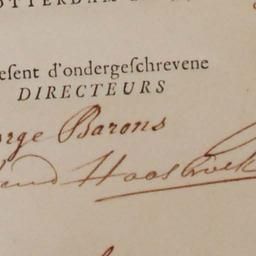 OTTERDAM
esent d'ondergeschrevene
DIRECTEURS
rge Barons